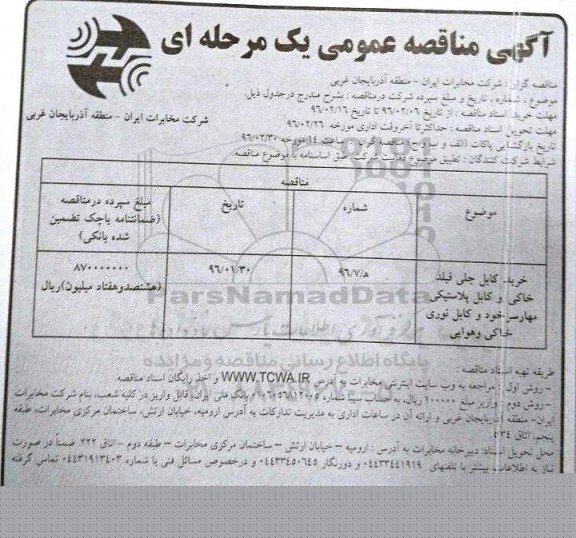 آگهی مناقصه عمومی یک مرحله ای
شرکت مخابرات ایران - منطقه آذربایجان غربی
مناقصه گزار: شرکت مخابرات ایران - منطقه آذربایجان غربی
موضوع ، شماره ، تاریخ و مبلغ سپرده شرکت در مناقصه : بشرح مندرج درجدول ذیل.
مهلت خرید اسناد مناقصه : از تاریخ ۹۶/۰۲/۰۶ تا تاریخ ۹۶/۰۲/۱۶
مهلت تحویل اسناد مناقصه : حداکثرتا آخروقت اداری مورخه ۹۶/۰۲/۲۶
تاریخ بازگشایی پاکات (الف و ب و ج) مناقصه گران : ساعت ۱۴ مورخه ۹۶/۰۲/۳۰
شرایط شرکت کنندگان : تطبیق موضوع فعالیت شرکت طبق اساسنامه با موضوع مناقصه
مناقصه
موضوع
شماره
تاریخ
مبلغ سپرده درمناقصه
(ضمانتنامه یاچک تضمین
شده بانکی)
خرید کابل جلی فیلد
خاکی و کابل پلاستیکی
مهارسرخود و کابل نوری
خاکی وهوایی
۹۶/۷/ه
۹۶/۰۱/۳۰
۸۷۰۰۰۰۰۰۰
(هشتصدوهفتاد میلیون)ریال
ParsNamadData
پایگاه اطلاع رسانی مناقصه و مزایده
طریقه تهیه اسناد مناقصه :
- روش اول : مراجعه به وب سایت اینترنتی مخابرات به آدرس WWW.TCWA.IR و اخذ رایگان اسناد مناقصه.
- روش دوم : واریز مبلغ ۱۰۰۰۰۰ ریال، به حساب سیبا شماره بانک ملی ایران، قابل واریز در کلیه شعب، بنام شرکت مخابرات
ایران- منطقه آذربایجان غربی و ارائه آن در ساعات اداری به مدیریت تدارکات به آدرس ارومیه، خیابان ارتش، ساختمان مرکزی مخابرات، طبقه
پنجم، اتاق ۵۳۴.
محل تحویل اسناد: دبیرخانه مخابرات به آدرس : ارومیه – خیابان ارتش – ساختمان مرکزی مخابرات – طبقه دوم – اتاق ۲۲۲ ضمناً در صورت
نیاز به اطلاعات بیشتر با تلفنهای ۰۴۴۳۳۴۴۱۹۱۹ و دورنگار ۰۴۴۳۳۴۵۰۶۴۵ و درخصوص مسائل فنی با شماره ۰۴۴۳۱۹۱۳۴۰۳ تماس گرفته